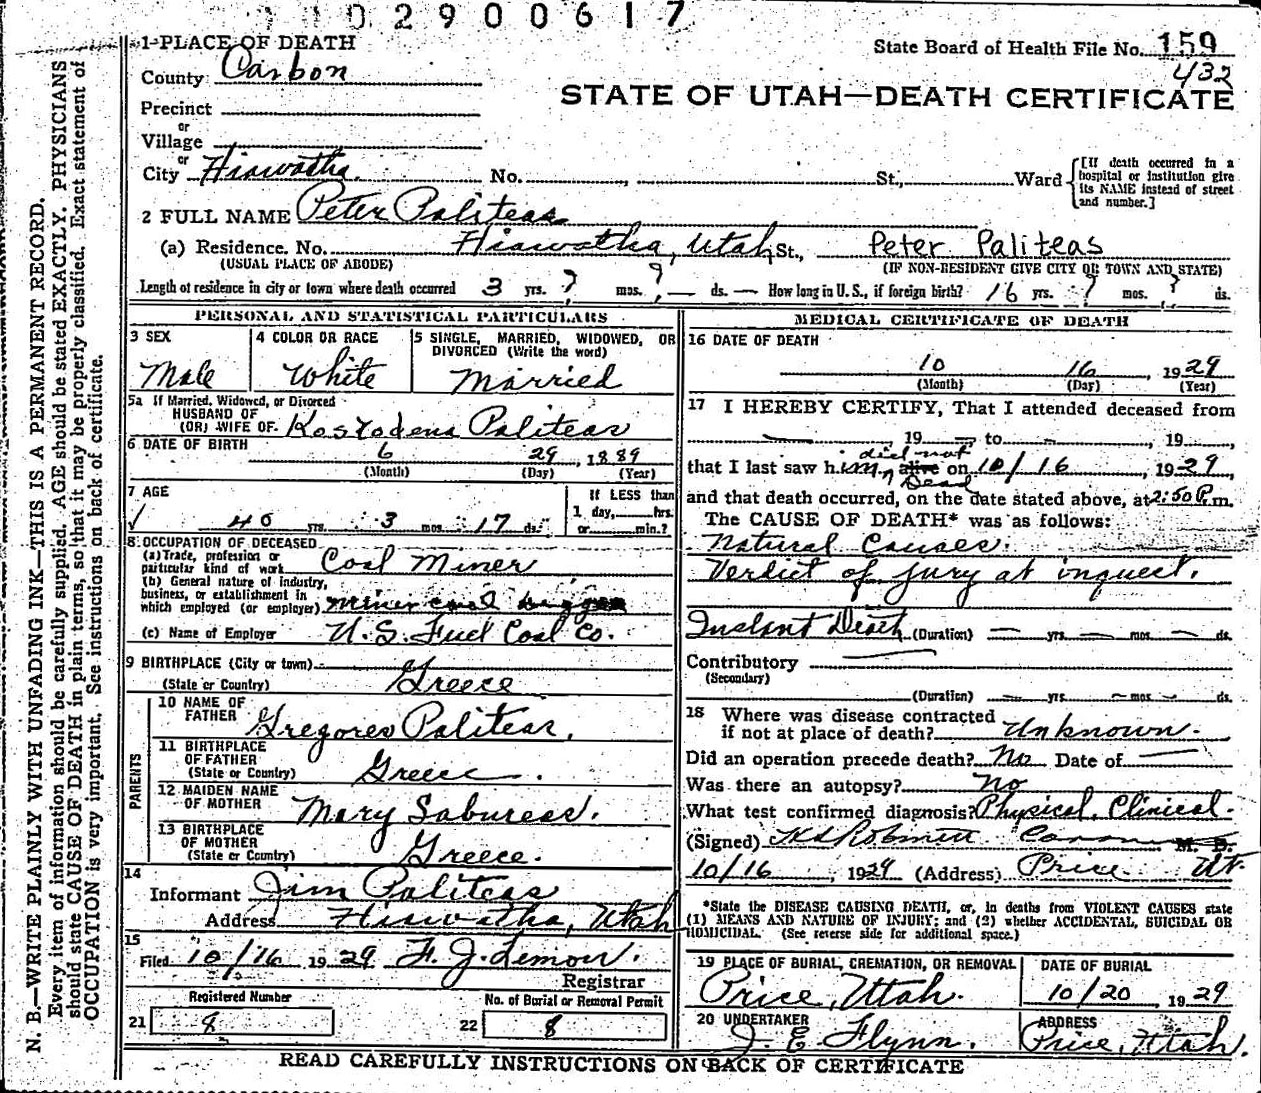 02900617
1-PLACE OF DEATH
State Board of Health File No. 159
432
County Carbon
STATE OF UTAH—DEATH CERTIFICATE
Precinct
or
Village
or
City Hiawatha No. St., Ward
[If death occurred in a hospital or institution give its NAME instead of street and number.]
2 FULL NAME Peter Paliteas
(a) Residence. No. Hiawatha, Utah St., Peter Paliteas
(USUAL PLACE OF ABODE) (IF NON-RESIDENT GIVE CITY OR TOWN AND STATE)
Length of residence in city or town where death occurred 3 yrs. ? mos. ? — ds. — How long in U.S., if foreign birth? 16 yrs. ? mos. ? ds.
PERSONAL AND STATISTICAL PARTICULARS
3 SEX
Male
4 COLOR OR RACE
White
5 SINGLE, MARRIED, WIDOWED, OR DIVORCED (Write the word)
Married
5a If Married, Widowed, or Divorced
HUSBAND OF
(OR) WIFE OF Kostodena Paliteas
6 DATE OF BIRTH 6 29, 1889
(Month) (Day) (Year)
7 AGE
40 yrs. 3 mos. 17 ds.
If LESS than
1 day, hrs.
or min.?
8 OCCUPATION OF DECEASED
(a) Trade, profession or
particular kind of work Coal Miner
(b) General nature of industry,
business, or establishment in
which employed (or employer) miner coal digger
(c) Name of Employer U.S. Fuel Coal Co.
9 BIRTHPLACE (City or town)
(State or Country) Greece
PARENTS
10 NAME OF
FATHER Gregores Paliteas.
11 BIRTHPLACE
OF FATHER
(State or Country) Greece.
12 MAIDEN NAME
OF MOTHER Mary Sabureas.
13 BIRTHPLACE
OF MOTHER
(State or Country) Greece.
14
Informant Jim Paliteas
Address Hiawatha, Utah
15
Filed 10/16 1929 F. J. Lemon.
Registrar
Registered Number
21 8
No. of Burial or Removal Permit
22 8
MEDICAL CERTIFICATE OF DEATH
16 DATE OF DEATH
10 16 1929
(Month) (Day) (Year)
17 I HEREBY CERTIFY, That I attended deceased from
— , 19 — , to — , 19 ,
did not
that I last saw him alive on 10/16 1929
Dead
and that death occurred, on the date stated above, at 2:50 P.m.
The CAUSE OF DEATH* was as follows:
Natural Causes.
Verdict of jury at inquest.
Instant Death (Duration) — yrs. — mos. — ds.
Contributory
(Secondary)
(Duration) — yrs. — mos. — ds.
18 Where was disease contracted
if not at place of death? Unknown.
Did an operation precede death? No Date of —
Was there an autopsy? No
What test confirmed diagnosis? Physical, Clinical.
(Signed) M. D.
10/16, 1929 (Address) Price Ut
*State the DISEASE CAUSING DEATH, or, in deaths from VIOLENT CAUSES state
(1) MEANS AND NATURE OF INJURY; and (2) whether ACCIDENTAL, SUICIDAL OR
HOMICIDAL. (See reverse side for additional space.)
19 PLACE OF BURIAL, CREMATION, OR REMOVAL
Price, Utah.
DATE OF BURIAL
10/20, 1929
20 UNDERTAKER
J. E. Flynn.
ADDRESS
Price, Utah.
READ CAREFULLY INSTRUCTIONS ON BACK OF CERTIFICATE
N. B.—WRITE PLAINLY WITH UNFADING INK—THIS IS A PERMANENT RECORD.
Every item of information should be carefully supplied. AGE should be stated EXACTLY. PHYSICIANS
should state CAUSE OF DEATH in plain terms, so that it may be properly classified. Exact statement of
OCCUPATION is very important. See instructions on back of certificate.